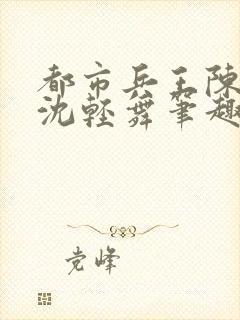 都市兵王陳
沈輕舞筆趣
党峰